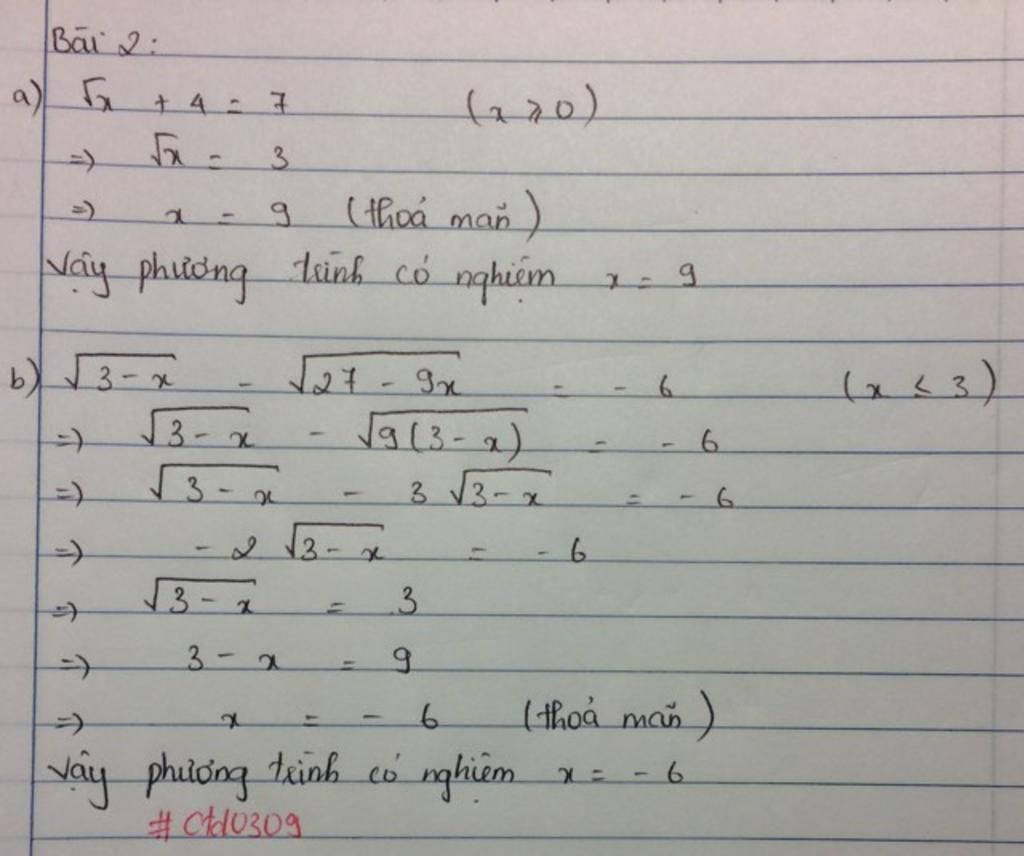 Bài 2:
a) √x + 4 = 7 (x ⩾ 0)
=> √x = 3
=> x = 9 (thoả mãn)
Vậy phương trình có nghiệm x = 9
b) √(3 - x) - √(27 - 9x) = - 6 (x ≤ 3)
=> √(3 - x) - √(9(3 - x)) = - 6
=> √(3 - x) - 3√(3 - x) = - 6
=> - 2√(3 - x) = - 6
=> √(3 - x) = 3
=> 3 - x = 9
=> x = - 6 (thoả mãn)
Vậy phương trình có nghiệm x = - 6
# Ctd0309